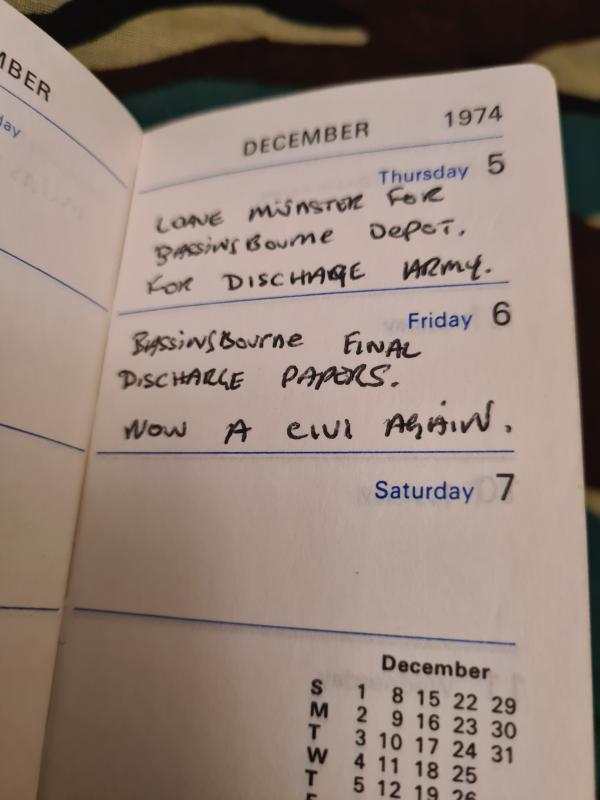 MBER
day
DECEMBER 1974
Thursday 5
LEAVE MÜNSTER FOR
BASSINGBOURNE DEPOT.
FOR DISCHARGE ARMY.
Friday 6
BASSINGBOURNE FINAL
DISCHARGE PAPERS.
NOW A CIVI AGAIN.
Saturday 7
December
S 1 8 15 22 29
M 2 9 16 23 30
T 3 10 17 24 31
W 4 11 18 25
T 5 12 19 26